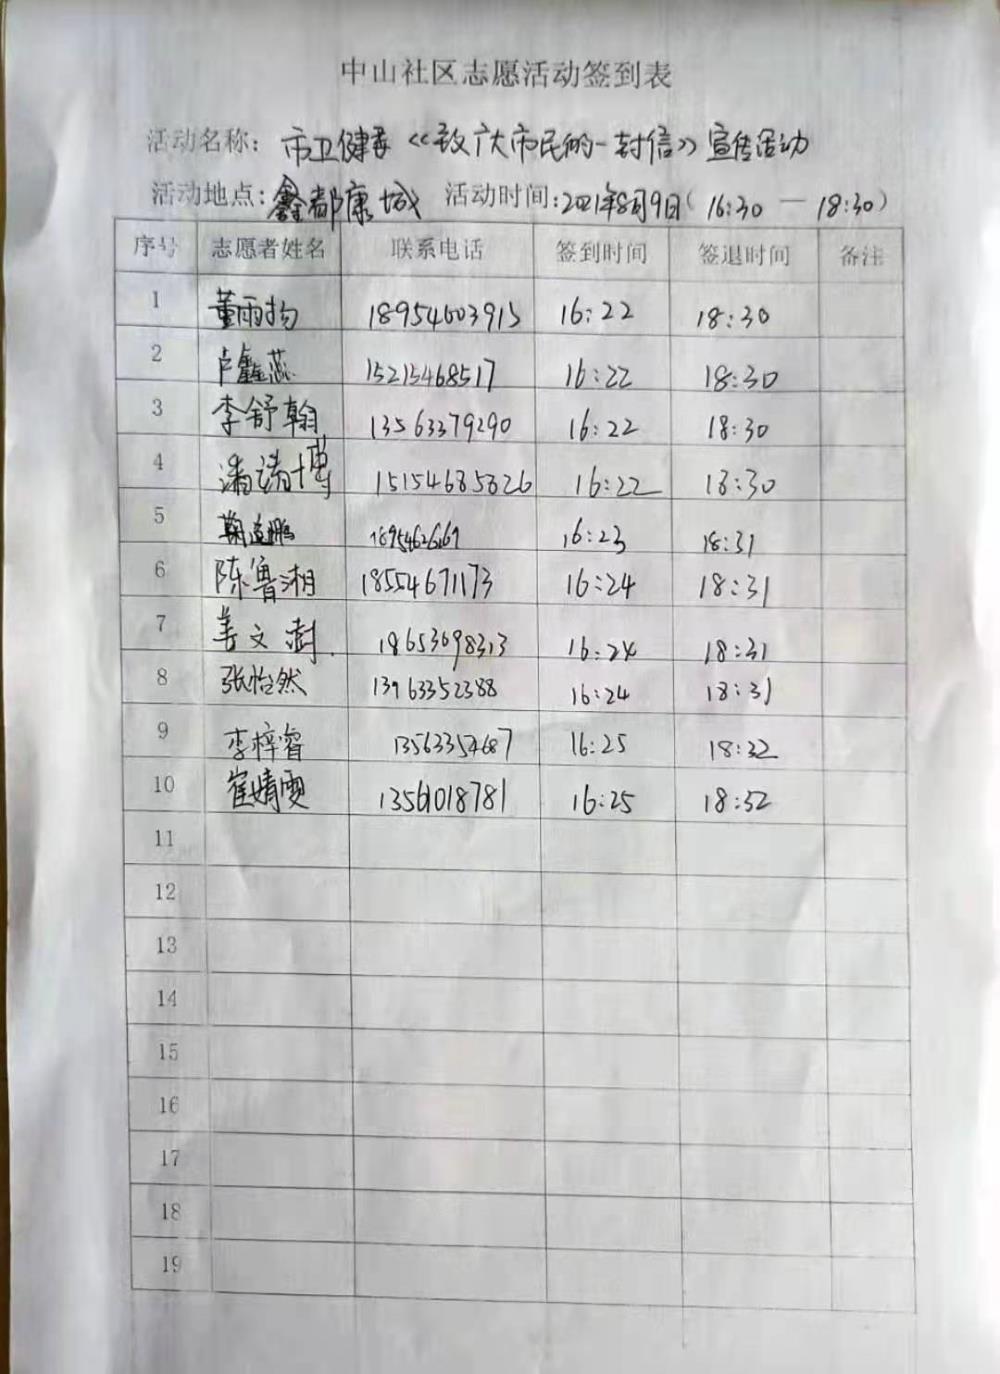 中山社区志愿活动签到表
活动名称: 市卫健委《致广大市民的一封信》宣传活动
活动地点: 鑫都康城 活动时间: 2021年8月9日(16:30 — 18:30)
序号 志愿者姓名 联系电话 签到时间 签退时间 备注
1 董雨扬 18954603915 16:22 18:30
2 卢鑫蕊 15215468517 16:22 18:30
3 李舒翰 13563379290 16:22 18:30
4 潘靖博 15154685826 16:22 18:30
5 16:23 18:31
6 陈鲁湘 18554671173 16:24 18:31
7 姜文澍 18653698313 16:24 18:31
8 张怡然 13963352388 16:24 18:31
9 李梓睿 13563354687 16:25 18:32
10 崔婧雯 13561018781 16:25 18:32
11
12
13
14
15
16
17
18
19